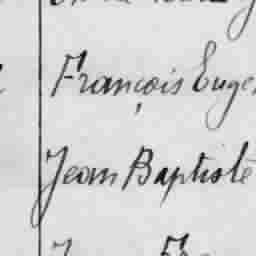 François Euge
Jean Baptiste